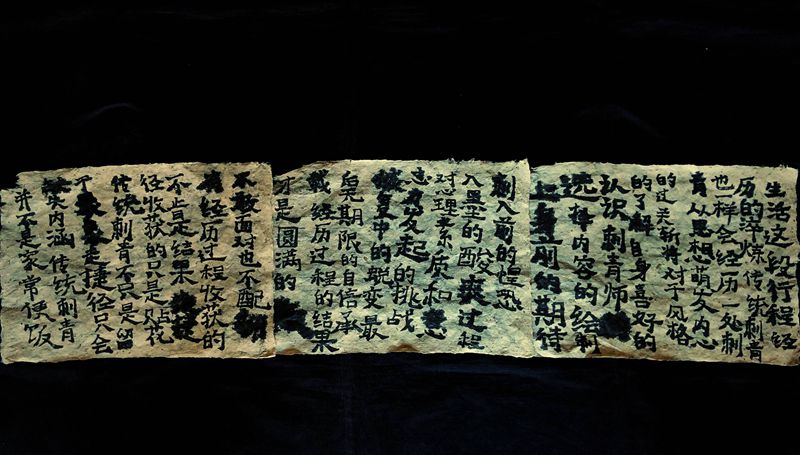 生活这段行程经
历的淬炼传统刺青
也一样会经历一处刺
青从思想萌发内心
的过关斩将对于风格
的了解自身喜好的
认识刺青师
选择内容的绘制
上皮前的期待
刺入前的惶恐
入墨的酸爽过程
对心理素质和意
志力发起的挑战
恢复中的蜕变最
后无期限的自信承
载经历过程的结果
才是圆满的
不敢面对也不配
有经历过程收获的
不止是结果
经收获的只是昙花
传统刺青不只是
个 捷径只会
内涵传统刺青
并不是家常便饭